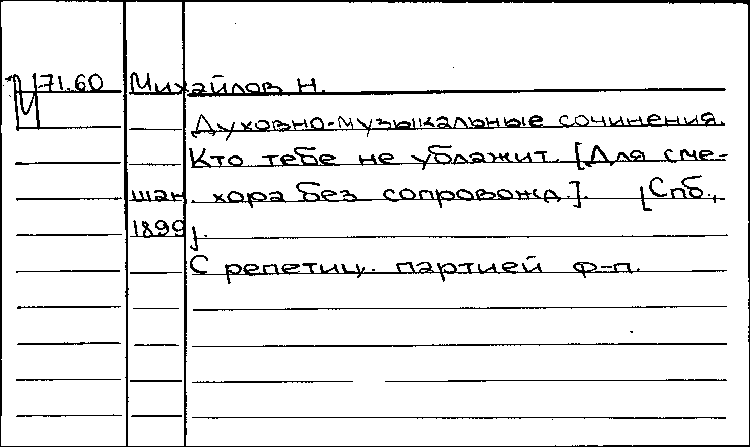 М 71.60 Михайлов Н.
Духовно-музыкальные сочинения.
Кто тебе не ублажит. [Для сме-
шан. хора без сопровожд.]. [Спб.,
1899].
С репетиц. партией ф-п.